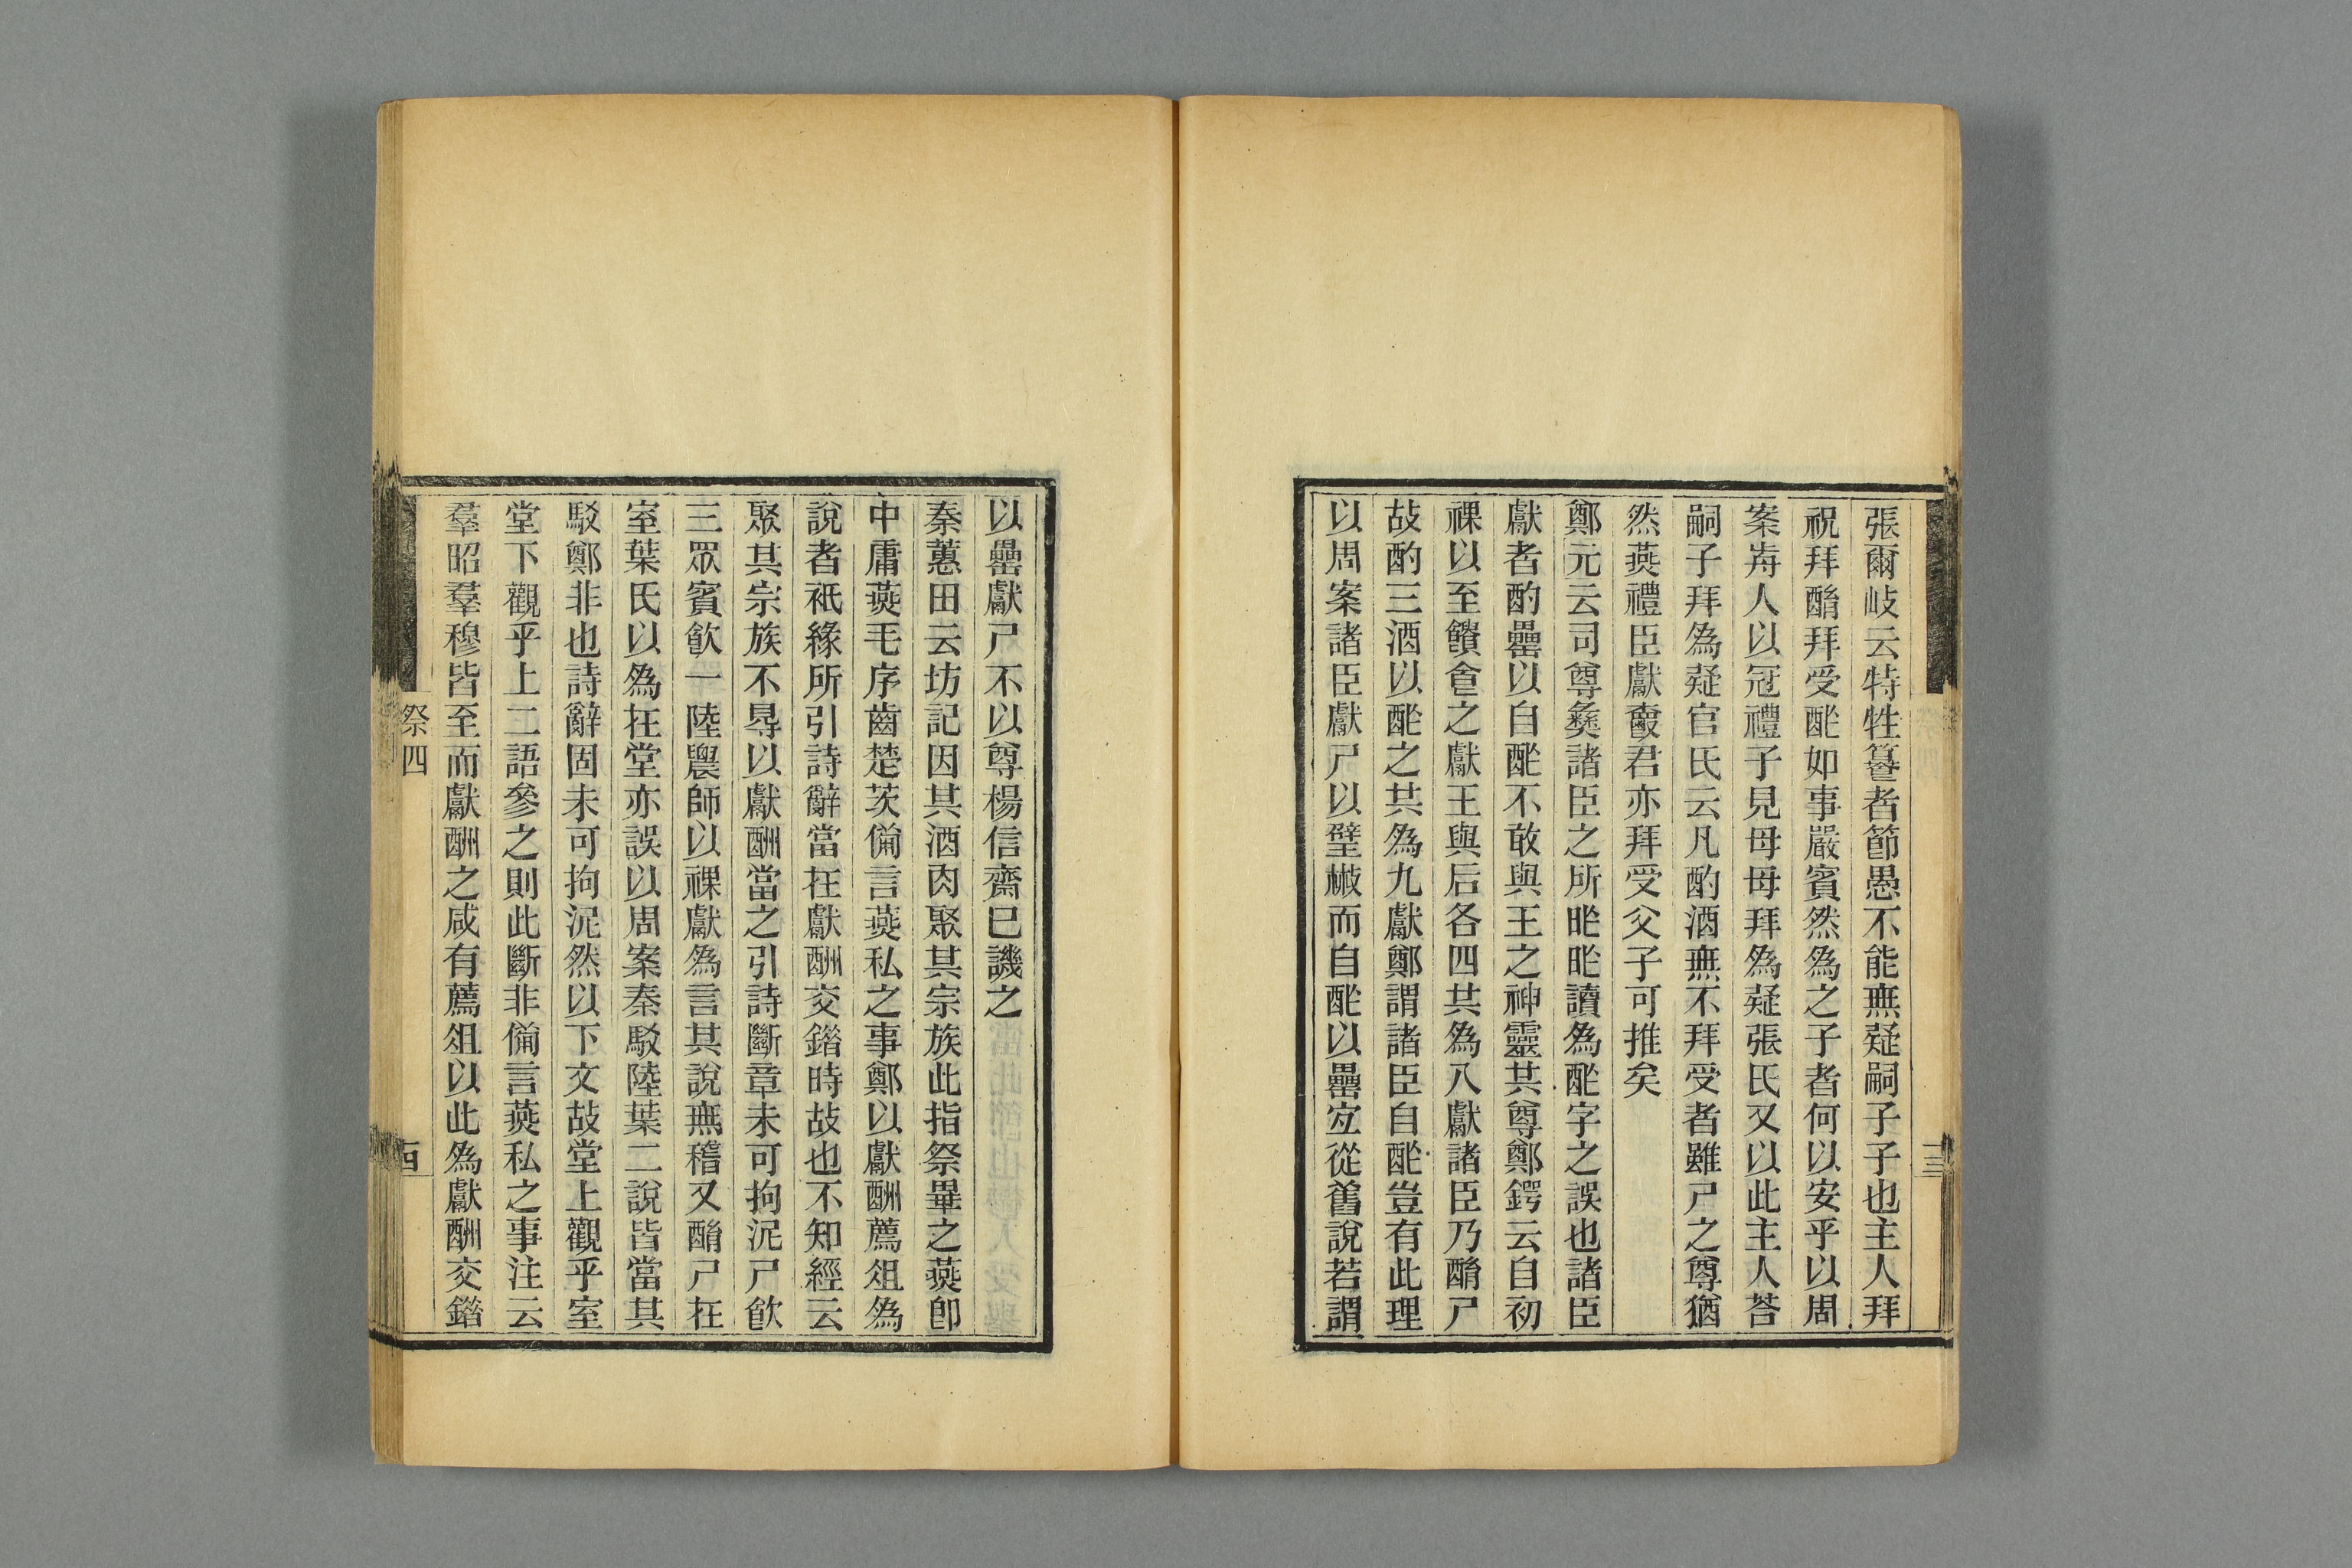 張爾岐云特牲篹者節愚不能無疑嗣子子也主人拜
祝拜酳拜受酢如事嚴賓然為之子者何以安乎以周
案歬人以冠禮子見母母拜為疑張氏又以此主人荅
嗣子拜為疑官氏云凡酌酒無不拜受者雖尸之尊猶
然燕禮臣獻爵君亦拜受父子可推矣
鄭元云司尊彝諸臣之所昨昨讀為酢字之誤也諸臣
獻者酌罍以自酢不敢與王之神靈共尊鄭鍔云自初
祼以至饋食之獻王與后各四共為八獻諸臣乃酳尸
故酌三酒以酢之共為九獻鄭謂諸臣自酢豈有此理
以周案諸臣獻尸以璧散而自酢以罍宐從舊說若謂
以罍獻尸不以尊楊信齋已譏之
秦蕙田云坊記因其酒肉聚其宗族此指祭畢之燕卽
中庸燕毛序齒楚茨備言燕私之事鄭以獻酬薦俎為
說者衹緣所引詩辭當在獻酬交錯時故也不知經云
聚其宗族不得以獻酬當之引詩斷章未可拘泥尸飲
三眾賓飲一陸農師以祼獻為言其說無稽又酳尸在
室葉氏以為在堂亦誤以周案秦駮陸葉二說皆當其
駮鄭非也詩辭固未可拘泥然以下文故堂上觀乎室
堂下觀乎上二語參之則此斷非備言燕私之事注云
羣昭羣穆皆至而獻酬之咸有薦俎以此為獻酬交錯
祭四